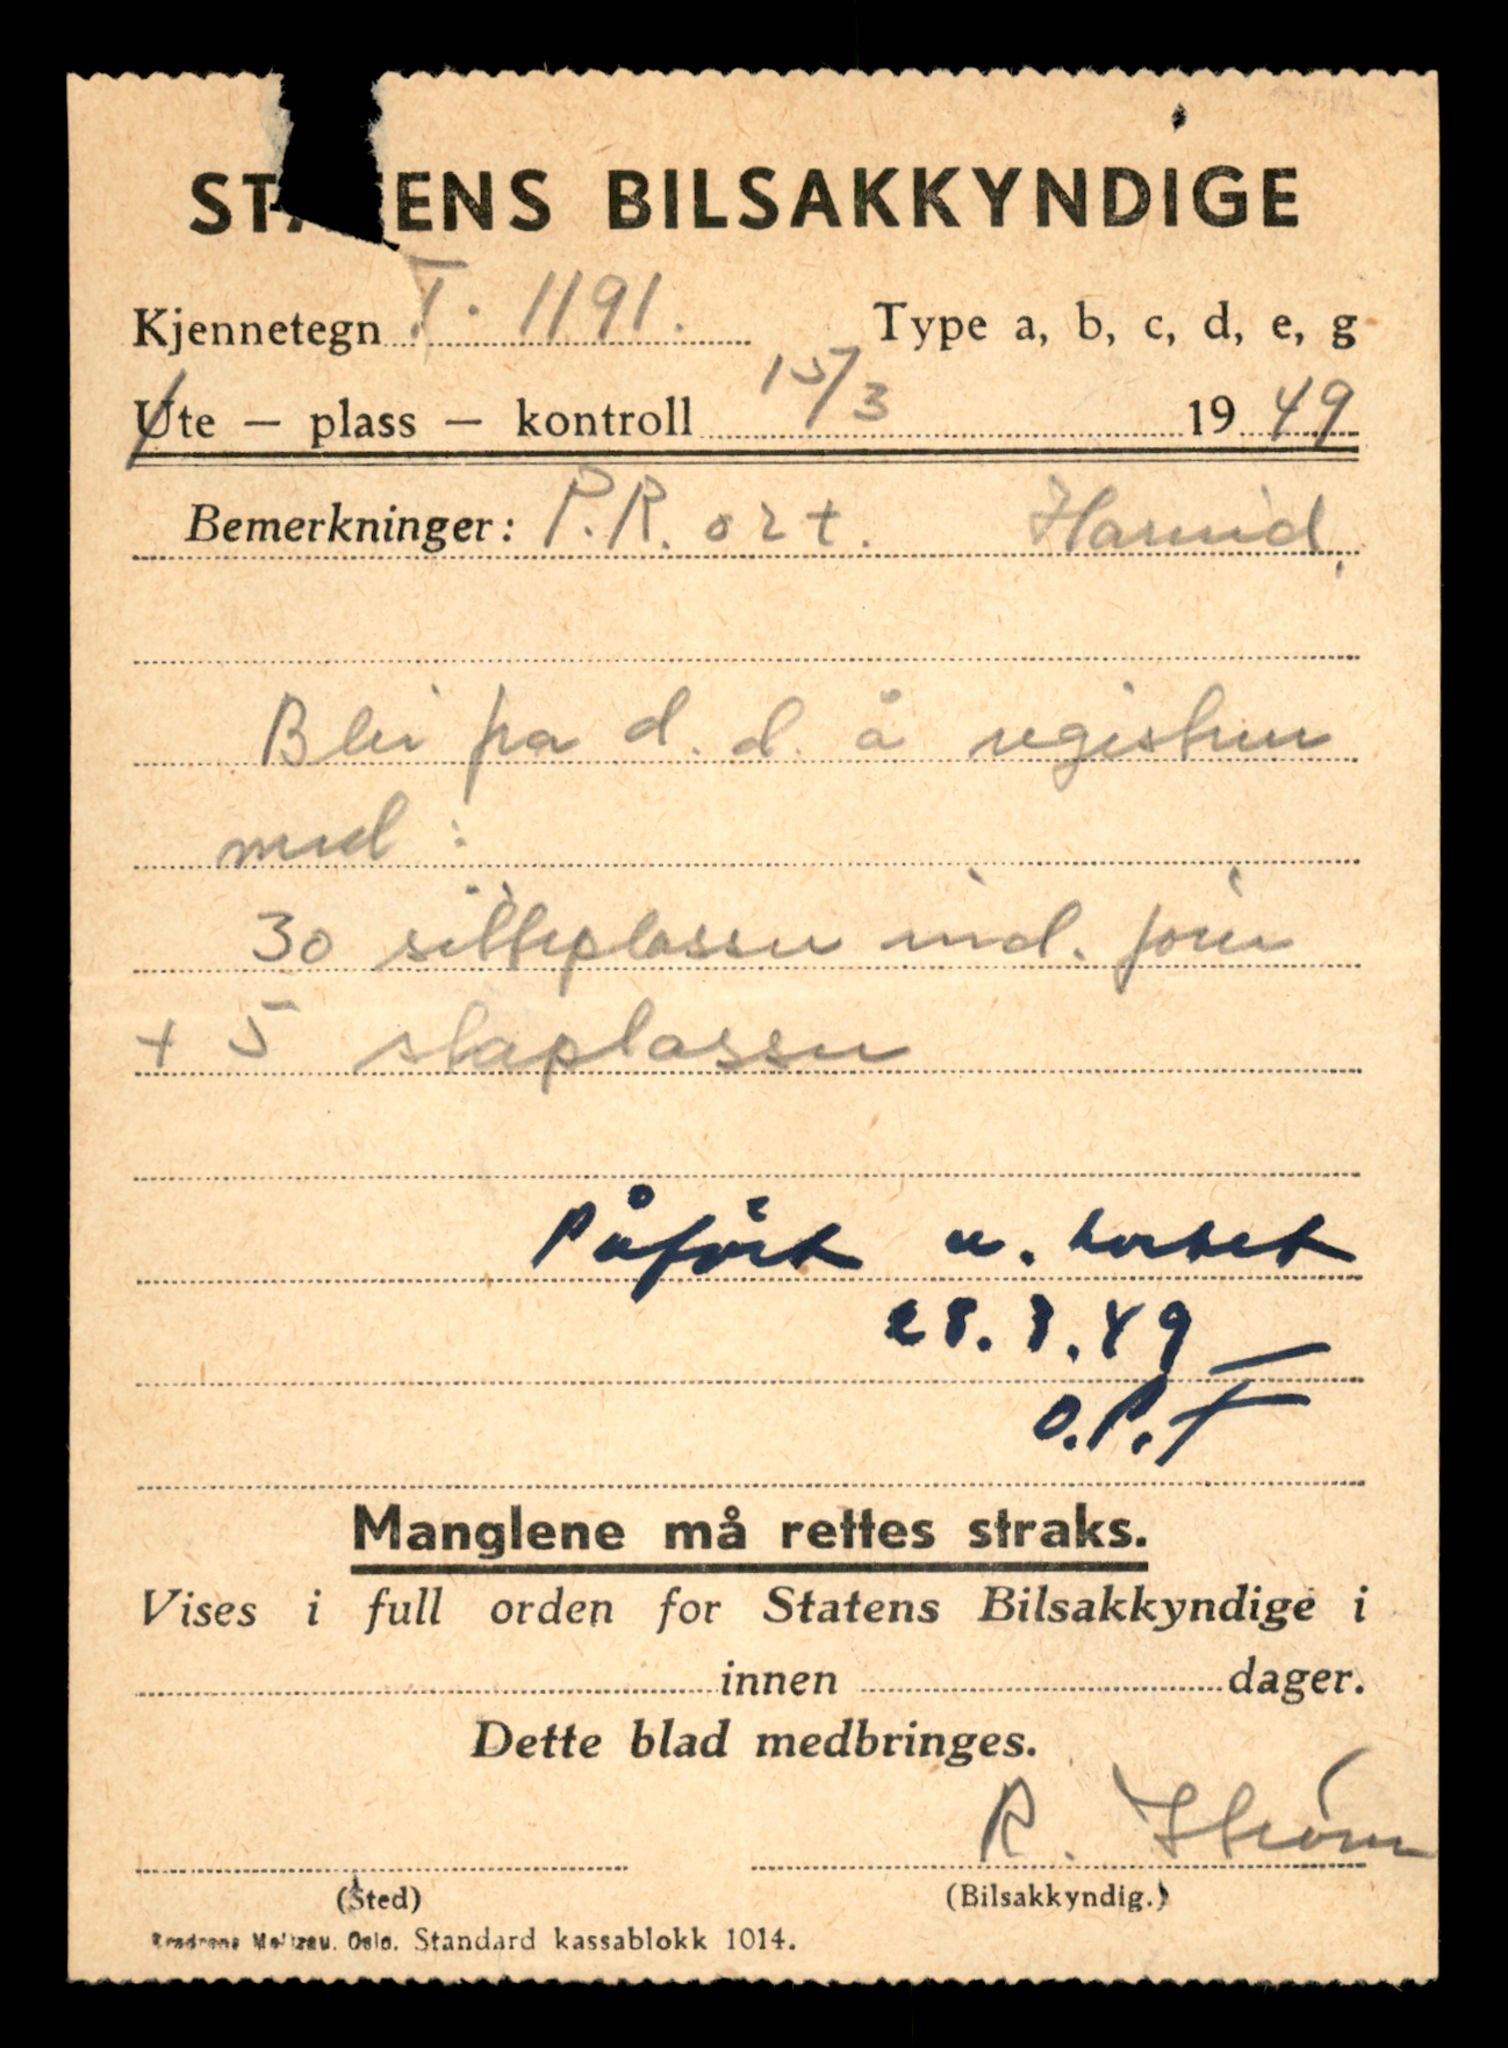 STATENS BILSAKKYNDIGE
Kjennetegn T. 1191. Type a, b, c, d, e, g
Ute — plass — kontroll 15/3 1949
Bemerkninger: P.R. ort. Hareid.
Blir fra d.d. å registrere
med:
30 sitteplasser incl. fører
+ 5 ståplasser
Påført v. kortet
28.3.49
O.P.F
Manglene må rettes straks.
Vises i full orden for Statens Bilsakkyndige i
innen dager.
Dette blad medbringes.
R. Strøm
(Sted) (Bilsakkyndig.)
Brødrene Meltzau. Oslo. Standard kassablokk 1014.